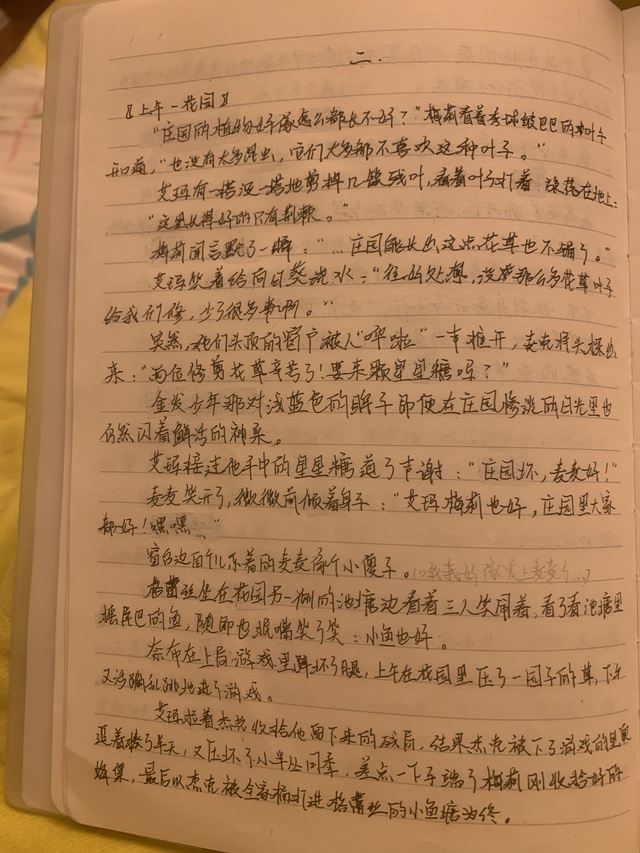 二.
〖上午－花园〗
“庄园的植物好像怎么都长不好？”梅莉看着秀球皱巴巴的叶子
和道，“也没有太多昆虫，它们大多都不喜欢这种叶子。”
艾玛有一搭没一搭地剪掉几簇残叶，看着叶子打着 旋落在地上：
“这里长得好的只有荆棘。”
梅莉闻言默了一瞬：“…庄园能长出这点花草也不错了。”
艾玛笑着给向日葵浇水：“往好处想，没有那么多花草叶子
给我们修，少了很多事啊。”
突然，她们头顶的窗户被人“哗啦”一声推开，麦克将头探出
来：“两位修剪花草辛苦了！要来颗星星糖吗？”
金发少年那对浅蓝色的眸子即便在庄园惨淡的日光里也
仍然闪着鲜活的神采。
艾玛接过他手中的星星糖道了声谢：“庄园坏，麦麦好！”
麦麦笑开了，微微前倾着身子：“艾玛梅莉也好，庄园里大家
都好！嘿嘿…”
窗台边自个儿乐着的麦麦像个小傻子。
格蕾丝坐在花园另一侧的池塘边看着三人笑闹着，看了看池塘里
摇尾巴的鱼，随即也抿嘴笑了笑：小鱼也好。
奈布在上局游戏里蹲坏了腿，上午在花园里压了一园子的草，下午
又活蹦乱跳地进了游戏。
艾玛拉着杰克收拾他留下来的残局，结果杰克被下了游戏的里奥
追着揍了半天，又压坏了小半丛月季，差点一下子踹了梅莉刚收拾好的
蜂巢，最后以杰克被全家桶打进格蕾丝的小鱼塘为终。